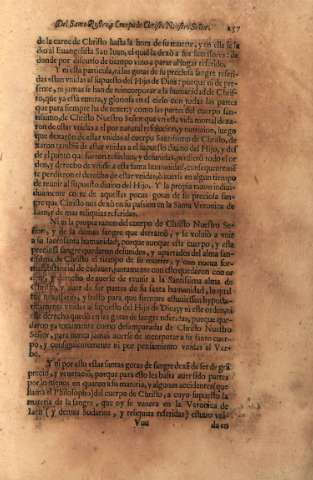 Del Santo Rostro, y Cuerpo de Christo Nuestro Señor. 157
de la carne de Christo hasta la hora de su muerte, y en ella se la
dio al Evangelista San Juan, el qual la dexò a sus
donde por discurso de tiempo vino a parar al lugar referido.
Y ni esta particula, ni las gotas de su preciosa sangre referi-
das estan vnidas al supuesto del Hijo de Dios: porque ni de pre-
sente, ni jamas se han de reincorporar a la humanidad de Christo,
que ya està entera, y gloriosa en el cielo con todas las partes
que para siempre ha de tener: como las partes del cuerpo san-
tissimo de Christo Nuestro Señor que en esta vida mortal dexa-
ron de estar vnidas a el por natural resolucion, y nutricion, luego
que dexaron de estar vnidas al cuerpo Santissimo de Christo, de
xaron tambien de estar vnidas a el supuesto divino del Hijo, y des
de el punto que fueron resueltas, y desunidas, perdieron todo el or
den, y derecho de vnirse a esta santa humanidad, consequentemē
te perdieron el derecho de estar vnidas, ò unirse en algun tiempo
de reunir al supuesto divino del Hijo. Y la propia razon indivi-
dualmente corre de aquestas pocas gotas de su preciosa san-
gre que Christo nos dexò en su passion en la Santa Veronica de
Iaen, y de mas reliquias referidas.
Ni es la propia razon del cuerpo de Christo Nuestro Se-
ñor, y de la demas sangre que derramò, y se volvio a vnir
a su sacrosanta humanidad, porque aunque este cuerpo, y esta
preciosa sangre quedaron desunidos, y apartados del alma san-
tissima de Christo el tiempo de su muerte, y con nueva for-
ma substancial de cadaver, juntamente con esso quedaron con or
den, y derecho de averse de reunir à la Santissima alma de
Christo, y aver de ser partes de su santa humanidad, la qual
y basta para que siempre estuviessen hyposta-
ticamente vnidas al supuesto del Hijo de Dios; y ni este orden, ni
este derecho quedò en las gotas de sangre referidas, porque que-
daron ya totalmente como desamparadas de Christo Nuestro
Señor, para nunca jamas averse de incorporar a su santo cuer-
po, y consiguientemente ni por pensamiento vnidas al Ver-
bo.
Y ni por esto estas santas gotas de sangre dexã de ser de grã
precio, y veneraciõ, porque para esto les basta aver sido partes
por lo menos en quanto a su materia, y algun accidente (que
llama el Philosopho) del cuerpo de Christo, a cuyo supuesto la
materia de la sangre, que oy se venera en la Veronica de
Iaen (y demas Sudarios, y reliquias referidas) estuvo vni-
Vuu da en